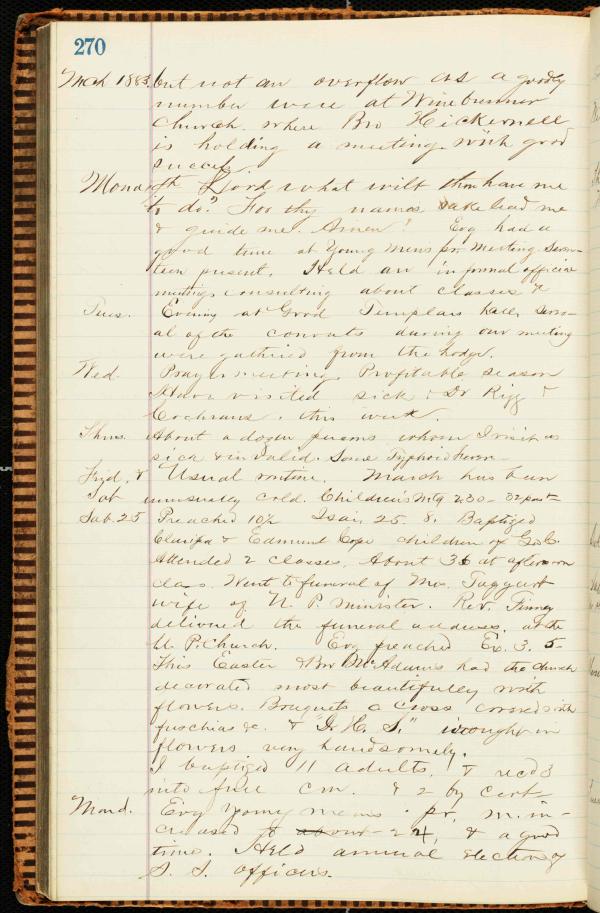 270
Mch 1883 but not an overflow as a goodly
number were at Winebrenner
Church. where Bro Hickernell
is holding a meeting with good
success.
Mond Lord what wilt thou have me
to do? For thy names sake lead me
& guide me. Amen! Evg had a
good time at Young Mens pr. Meeting. Seven-
teen present. Held an informal official
meeting consulting about classes &
Tues. Evening at Good Templars Hall, sever-
al of the converts during our meeting
were gathered from the Lodge.
Wed. Prayer meeting. Profitable season
Have visited sick. Dr Rigg &
Cochrans. this week.
Thurs. About a dozen persons whom I visit as
sick & invalid. Some Typhoid fever.
Frid. & Usual routine. March has been
Sat unusually cold. Children's Mtg 2.30 - 32 past
Sab. 25 Preached 10½ Isai. 25. 8. Baptized
Clarissa & Edmund Cope children of Geo C.
Attended 2 classes. About 36 at afternoon
class. Went to funeral of Mrs. Taggart
wife of U. P. Minister. Rev. Finney
delivered the funeral address. at the
U. P. Church. Evg preached Ex. 3. 5-
This Easter & Bro McAdams had the church
decorated most beautifully with
flowers. Bouquets a Cross covered with
fuschias &c. & "I. H. S." wrought in
flowers very handsomely.
I baptized 11 adults. & recd 3
into full cm. & 2 by cert
Mond. Evg Young mens pr. m. in-
creased to about 24, & a good
time. Held annual election of
S. S. officers.